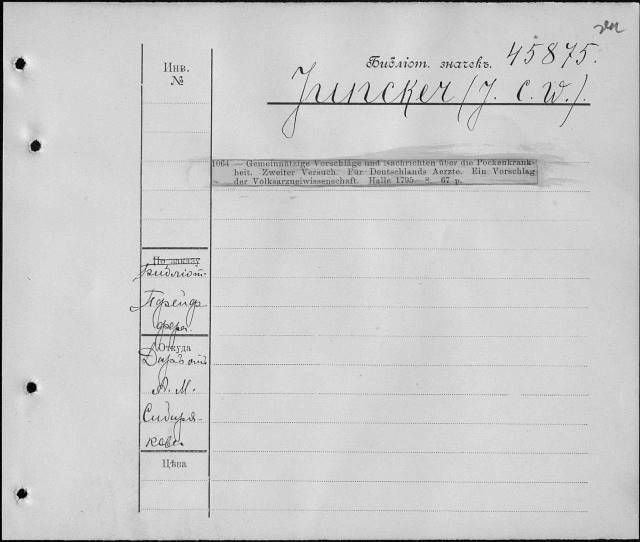 Инв.
№
Библіот. значекъ. 45875.
Juncker (J. C. W.).
1064 — Gemeinnützige Vorschläge und Nachrichten über die Pockenkrank-
heit. Zweiter Versuch. Für Deutschlands Aerzte. Ein Vorschlag
der Volksarzneiwissenschaft. Halle 1795. 8. 67 p.
По заказу
Библіот.
Пфейф
фера.
Откуда
Даръ отъ
А. М.
Сибиря-
кова.
Цѣна